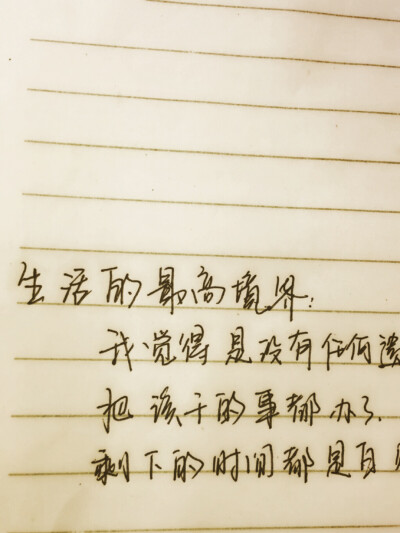 生活的最高境界:
我觉得是没有任何遗
把该干的事都办了.
剩下的时间都是自